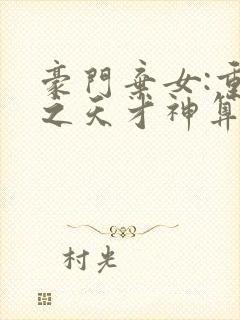 豪門棄女:重
之天才神算
村光